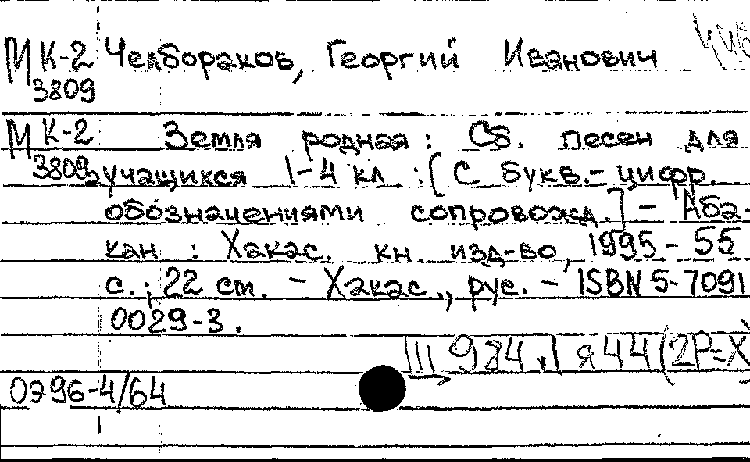 МК-2 Челбораков, Георгий Иванович
3809
МК-2 Земля родная : Сб. песен для
3809 учащихся 1-4 кл. : [С букв.-цифр.
обозначениями сопровожд.] - Аба-
кан : Хакас. кн. изд-во, 1995 - 55
с. ; 22 см. - Хакас., рус. - ISBN 5-7091
0029-3.
III 984.1 я44(2Р=Х
0796-4/64